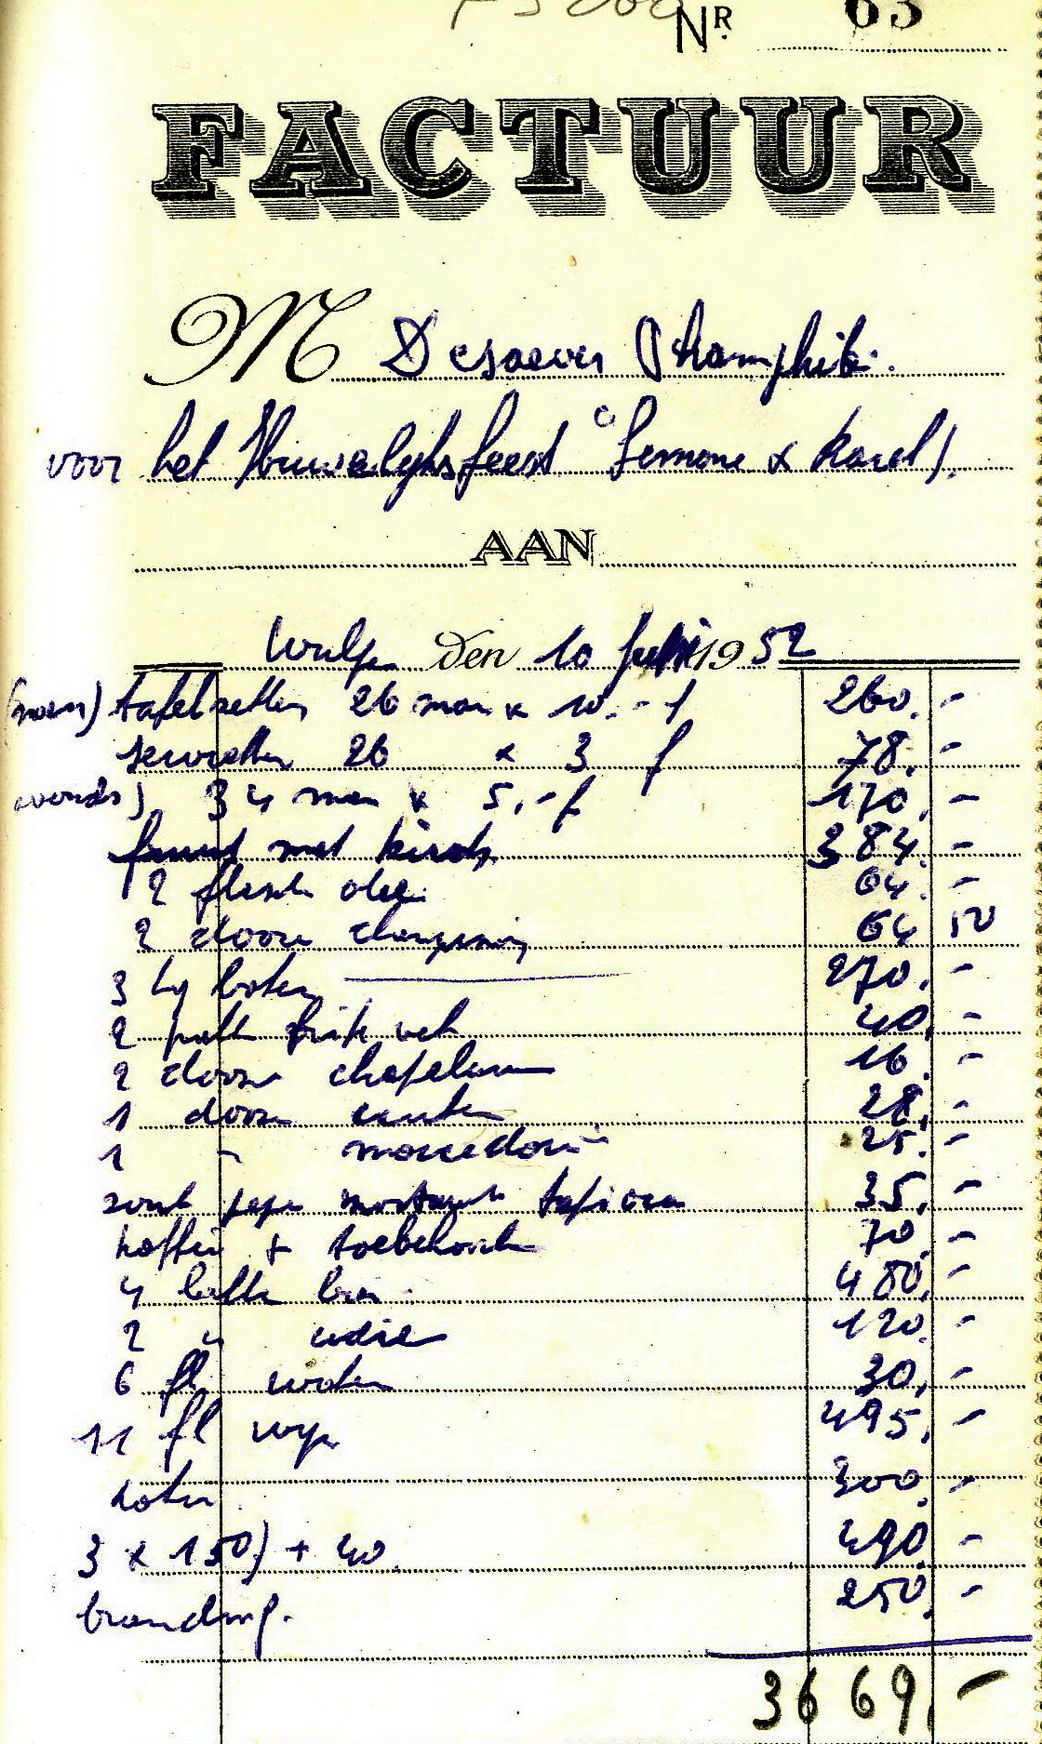 NR 63
FACTUUR
M Desaever
voor het Huwelijksfeest "Simone & Karel).
AAN
Wulpen den 10 1952
(noen) tafelzetten 26 man x 10.- f 260.-
servietten 26 x 3 f 78.-
avonds) 34 man x 5,- f 170.-
met kirsch 384.-
2 flesch olie 64.-
2 doozen 64 50
3 kg boter 270.-
2 frit vet 40.-
2 doozen chapelure 16.-
1 doos 28.-
1 " macedoine 25.-
zout peper mostaard tapioca 35.-
koffie + toebehoorten 70.-
4 bakken bier 480.-
2 " 120.-
6 fl water 30.-
11 fl wijn 495.-
300.-
3 x 150) + 40 490.-
branding. 250.-
3669.-